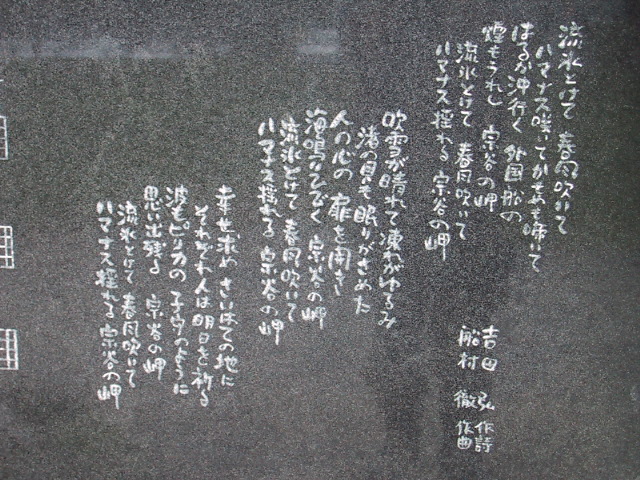 流氷とけて 春風吹いて
ハマナス咲いてかもめも啼いて
はるか沖行く 外国船の
煙もうれし 宗谷の岬
流氷とけて 春風吹いて
ハマナス揺れる 宗谷の岬
吹雪が晴れて 凍れがゆるみ
渚の貝も 眠りがさめた
人の心の 扉を開き
海鳴りひびく 宗谷の岬
流氷とけて 春風吹いて
ハマナス揺れる 宗谷の岬
幸せ求め さいはての地に
それぞれ人は 明日を祈る
波もピリカの 子守のように
思い出残る 宗谷の岬
流氷とけて 春風吹いて
ハマナス揺れる 宗谷の岬
吉田 弘 作詩
船村 徹 作曲